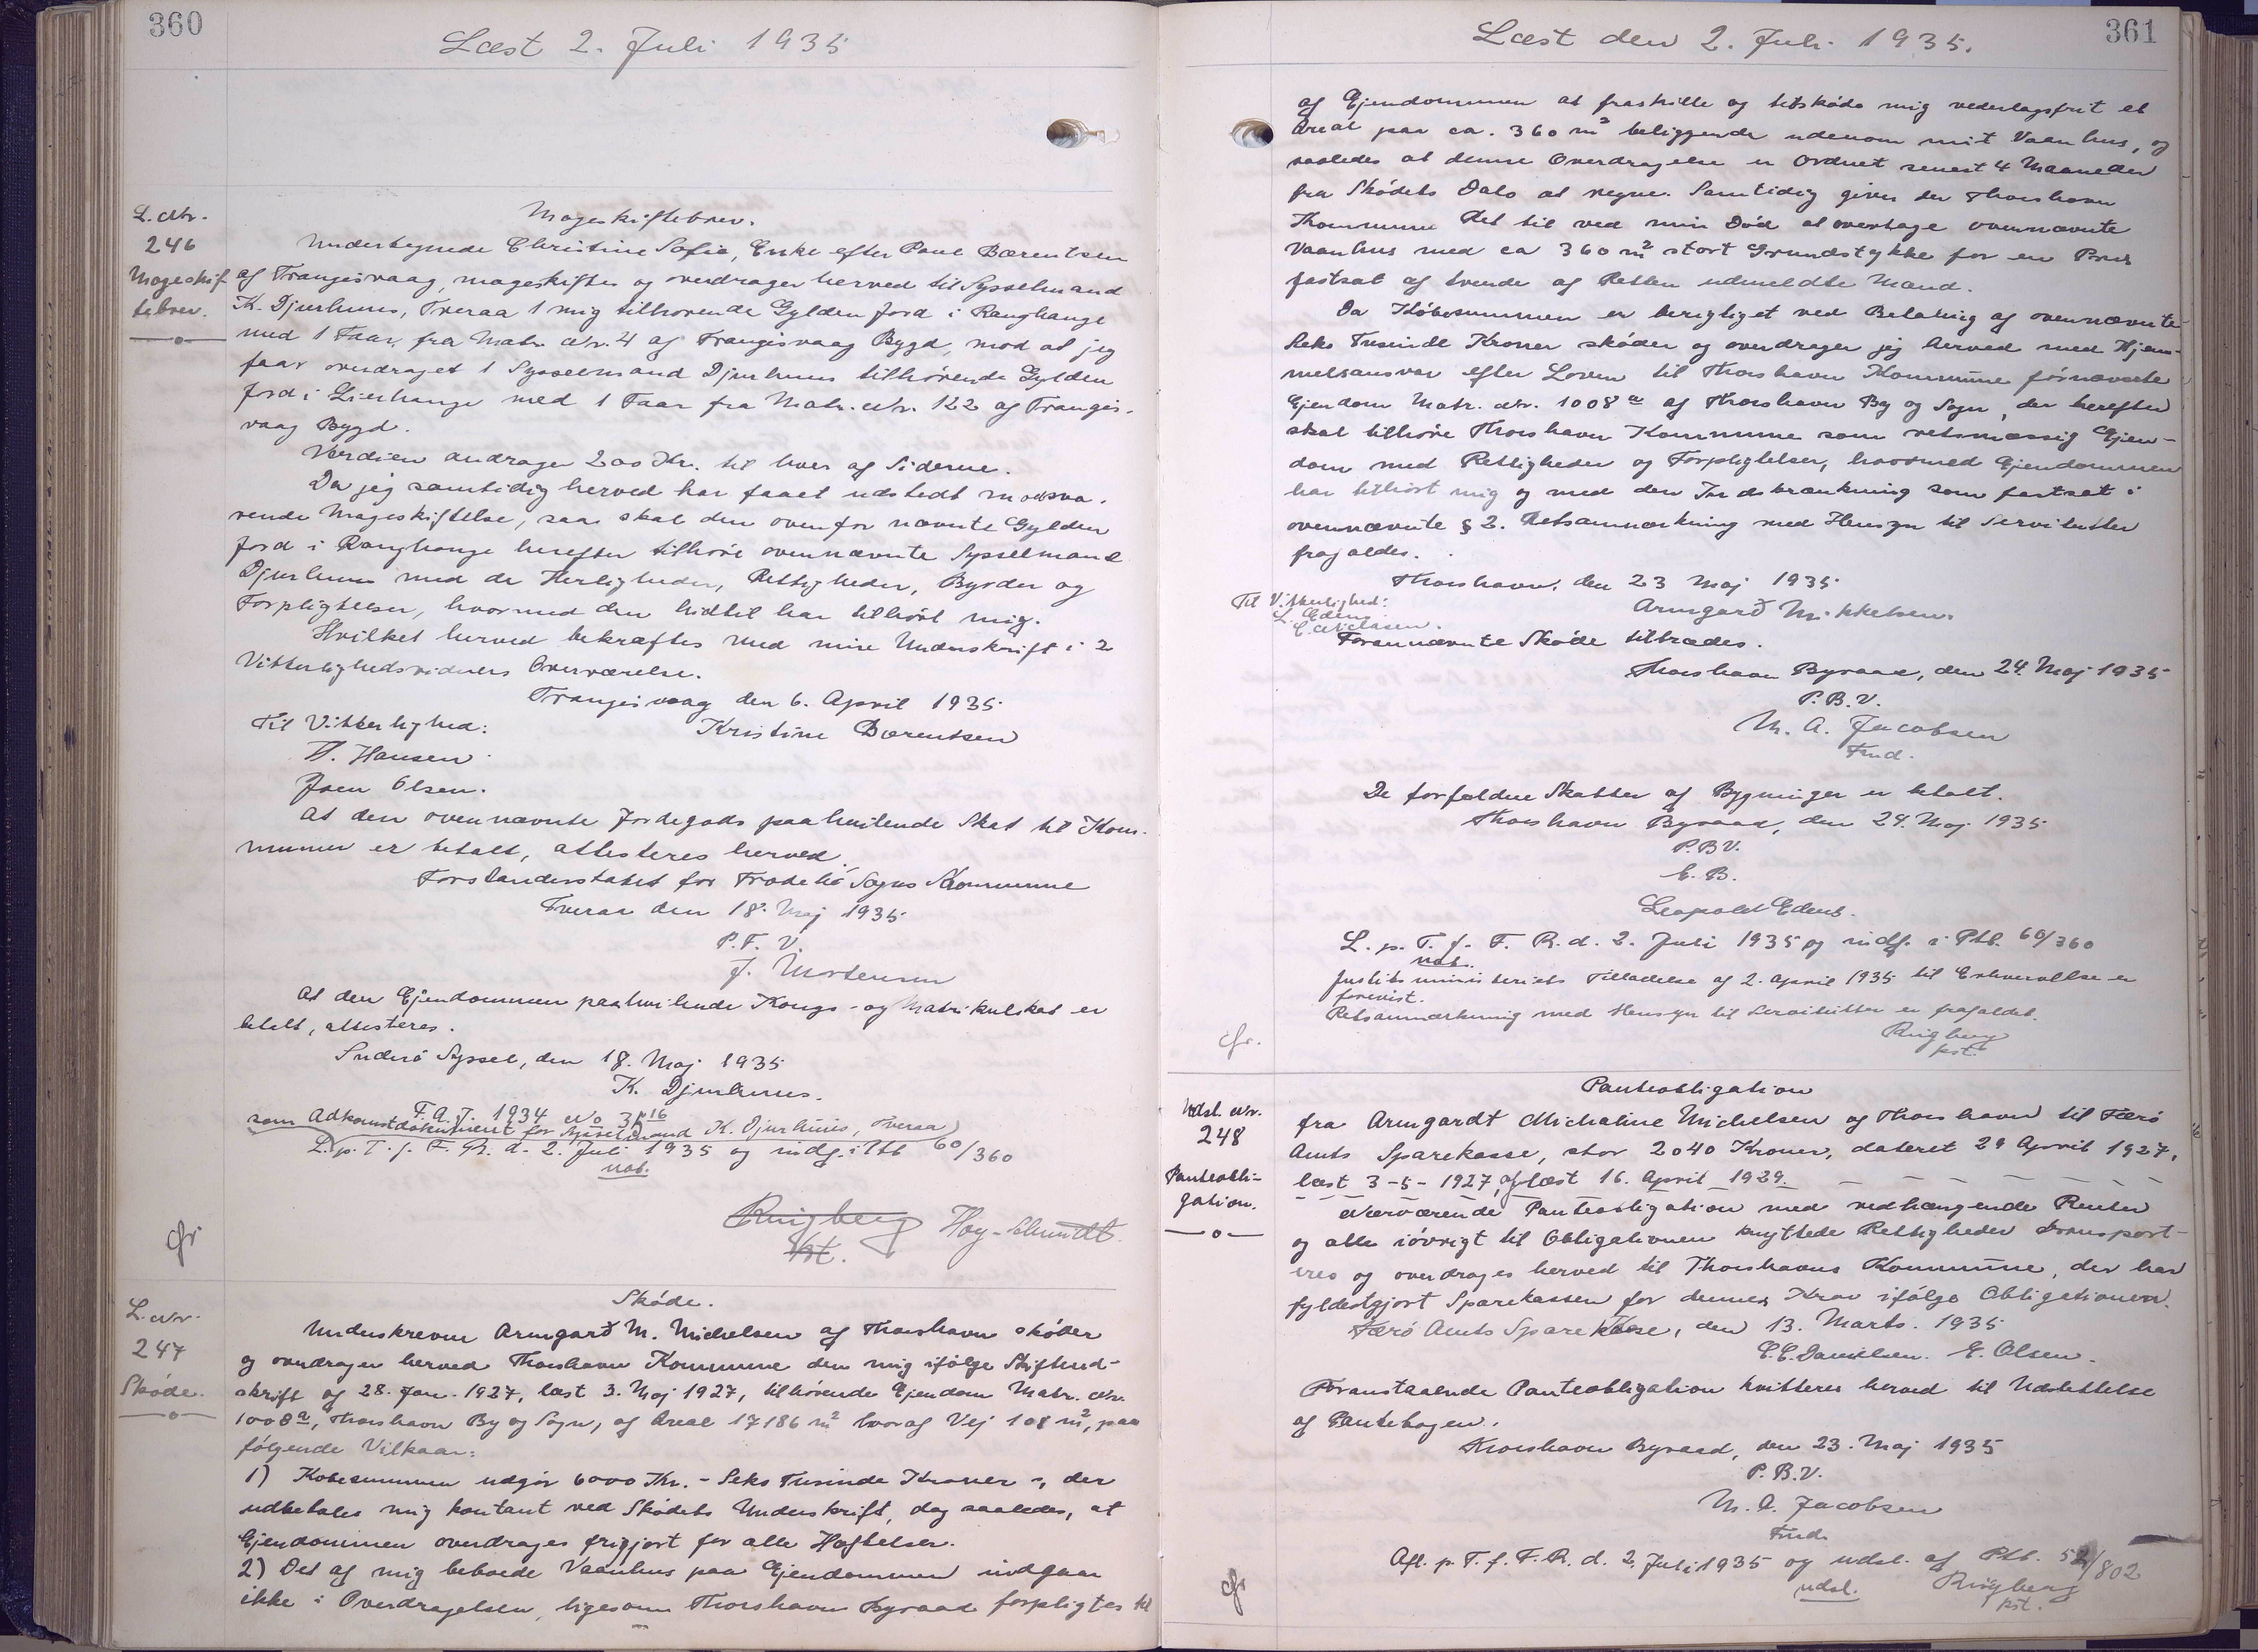 360
Læst 2. Juli 1935
L. Nr.
246
Mageskif
tebrev.
Mageskiftebrev.
Undertegnede Christine Sofie, Enke efter Poul Bærentsen
af Trangisvaag, mageskifter og overdrager herved til Sysselmand
K. Djurhuus, Tveraa 1 mig tilhørende Gylden Jord i Ranghange
med 1 Faar, fra Matr. Nr. 4 af Trangisvaag Bygd, mod at jeg
faar overdraget 1 Sysselmand Djurhuus tilhørende Gylden
Jord i Lierhange med 1 Faar fra Matr. Nr. 122 af Trangis-
vaag Bygd.
Værdien andrager 200 Kr. til hver af Siderne.
Da jeg samtidig herved har faaet udstedt modsva-
rende Mageskiftelse, saa skal den ovenfor nævnte Gylden
Jord i Ranghange herefter tilhøre ovennævnte Sysselmand
Djurhuus med de Herligheder, Rettigheder, Byrder og
Forpligtelser, hvormed den hidtil har tilhørt mig.
Hvilket herved bekræftes med min Underskrift i 2
Vitterlighedsvidners Overværelse.
Trangisvaag den 6. April 1935
Til Vitterlighed: Kristine Bærentsen
H. Hansen
Joen Olsen.
At den ovennævnte Jordegods paahvilende Skat til Kom-
munen er betalt, attesteres herved.
Forstanderskabet for Frodebø Sogns Kommune
Tveraa den 18. Maj 1935
P.F.V.
J. Mortensen
At den Ejendommen paahvilende Kongs- og Matrikulskat er
betalt, attesteres.
Suderø Syssel, den 18. Maj 1935
K. Djurhuus.
F.A.T. 1934 No 35 16
som Adkomstdokument for Sysselmand K. Djurhuus, Tveraa
L. p. T. f. F. R. d. 2. Juli 1935 og indf. i Ptb 60/360
uab.
Ringberg Høy-Schmidt.
kst.
cfr
L. Nr.
247
Skøde.
Skøde.
Underskreven Armgarð M. Michelsen af Thorshavn skøder
og overdrager herved Thorshavn Kommune den mig ifølge Skifteud-
skrift af 28. Jan. 1927, læst 3. Maj 1927, tilhørende Ejendom Matr. Nr.
1008a, Thorshavn By og Sogn, af Areal 17186 m2 hvoraf Vej 108 m2, paa
følgende Vilkaar:
1) Købesummen udgør 6000 Kr. - Seks Tusinde Kroner -, der
udbetales mig kontant ved Skødets Underskrift, dog saaledes, at
Ejendommen overdrages frigjort for alle Hæftelser.
2) Det af mig beboede Vaanhus paa Ejendommen indgaar
ikke i Overdragelsen, ligesom Thorshavn Byraad forpligtes til
361
Læst den 2. Juli 1935.
af Ejendommen at fraskille og tilskøde mig vederlagsfrit et
Areal paa ca. 360 m2 beliggende udenom mit Vaanhus, og
saaledes at denne Overdragelse er Ordnet senest 4 Maaneder
fra Skødets Dato at regne. Samtidig giver der Thorshavn
Kommune Ret til ved min Død at overtage ovennævnte
Vaanhus med ca 360 m2 stort Grundstykke for en Pris
fastsat af tvende af Retten udmeldte Mænd.
Da Købesummen er berigtiget ved Betaling af ovennævnte
Seks Tusinde Kroner skøder og overdrager jeg herved med Hjem-
melsansvar efter Loven til Thorshavn Kommune førnævnte
Ejendom Matr. Nr. 1008a af Thorshavn By og Sogn, der herefter
skal tilhøre Thorshavn Kommune som retsmæssig Ejen-
dom med Rettigheder og Forpligtelser, hvormed Ejendommen
har tilhørt mig og med den Indskrænkning som fastsat i
ovennævnte § 2. Retsanmærkning med Hensyn til Servitutter
frafaldes.
Thorshavn, den 23 Maj 1935
Til Vitterlighed: Armgarð Mikkelsen.
L. Edens
E. Nielasen.
Forannævnte Skøde tiltrædes.
Thorshavn Byraad, den 24. Maj 1935
P.B.V.
M. A. Jacobsen
Fmd.
De forfaldne Skatter af Bygninger er betalt.
Thorshavn Byraad, den 24. Maj 1935
P.B.V.
E. B.
Leopold Edens.
L. p. T. f. F. R. d. 2. Juli 1935 og indf. i Ptb. 60/360
uab.
Justitsministeriets Tilladelse af 2. April 1935 til Erhvervelse er
forevist.
Retsanmærkning med Hensyn til Servitutter er frafaldet.
Ringberg
kst.
cfr.
Udsl. Nr.
248
Panteobli-
gation.
Panteobligation
fra Armgardt Michaline Michelsen af Thorshavn til Færø
Amts Sparekasse, stor 2040 Kroner, dateret 29 April 1927,
læst 3-5-1927, aflæst 16. April 1929.
Nærværende Panteobligation med vedhængende Renter
og alle iøvrigt til Obligationen knyttede Rettigheder transport-
eres og overdrages herved til Thorshavns Kommune, der har
fyldestgjort Sparekassen for dennes Krav ifølge Obligationen.
Færø Amts Sparekasse, den 13. Marts. 1935
C.C. Danielsen. E. Olsen.
Foranstaaende Panteobligation kvitteres herved til Udslettelse
af Pantebogen.
Thorshavn Byraad, den 23. Maj 1935
P.B.V.
M. A. Jacobsen
Fmd.
Afl. p. T. f. F. R. d. 2. Juli 1935 og udsl. af Ptb. 52/802
udsl. Ringberg
kst.
cfr